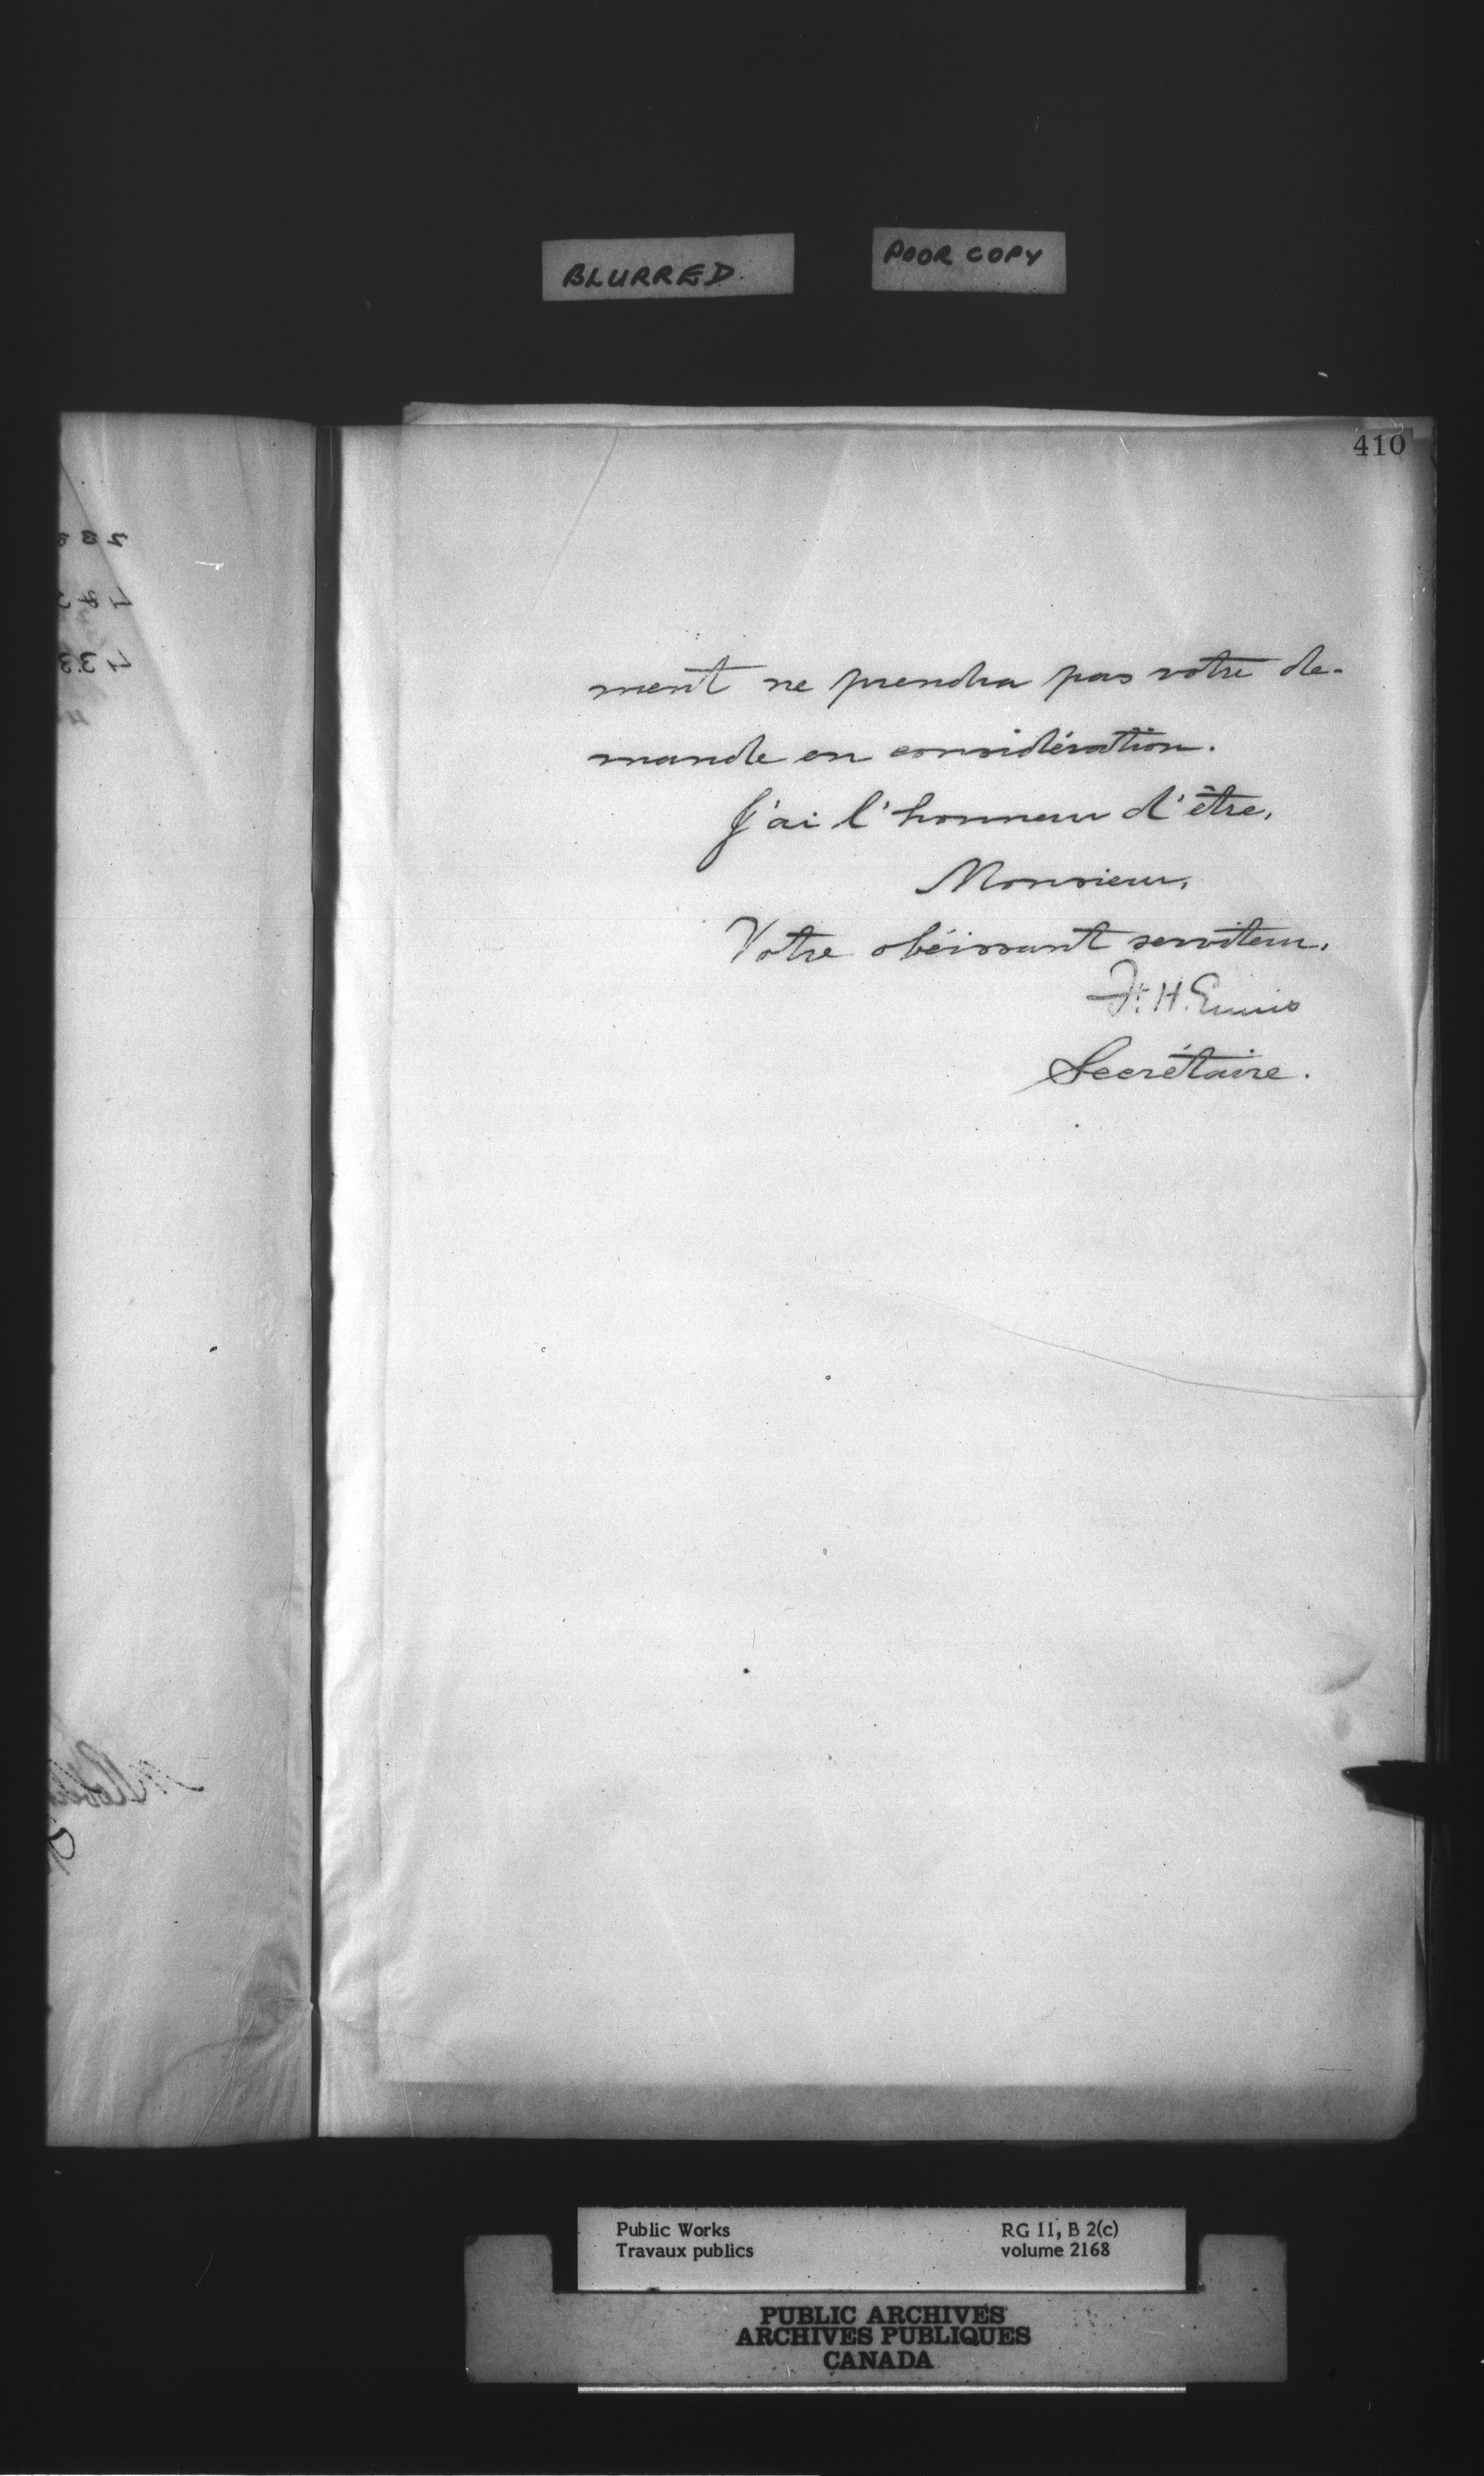 BLURRED.
POOR COPY
410
ment ne prendra pas votre de-
mande en considération.
J'ai l'honneur d'être,
Monsieur,
Votre obéissant serviteur,
F. H. Ennis
Secrétaire.
Public Works
Travaux publics
RG 11, B 2(c)
volume 2168
PUBLIC ARCHIVES
ARCHIVES PUBLIQUES
CANADA